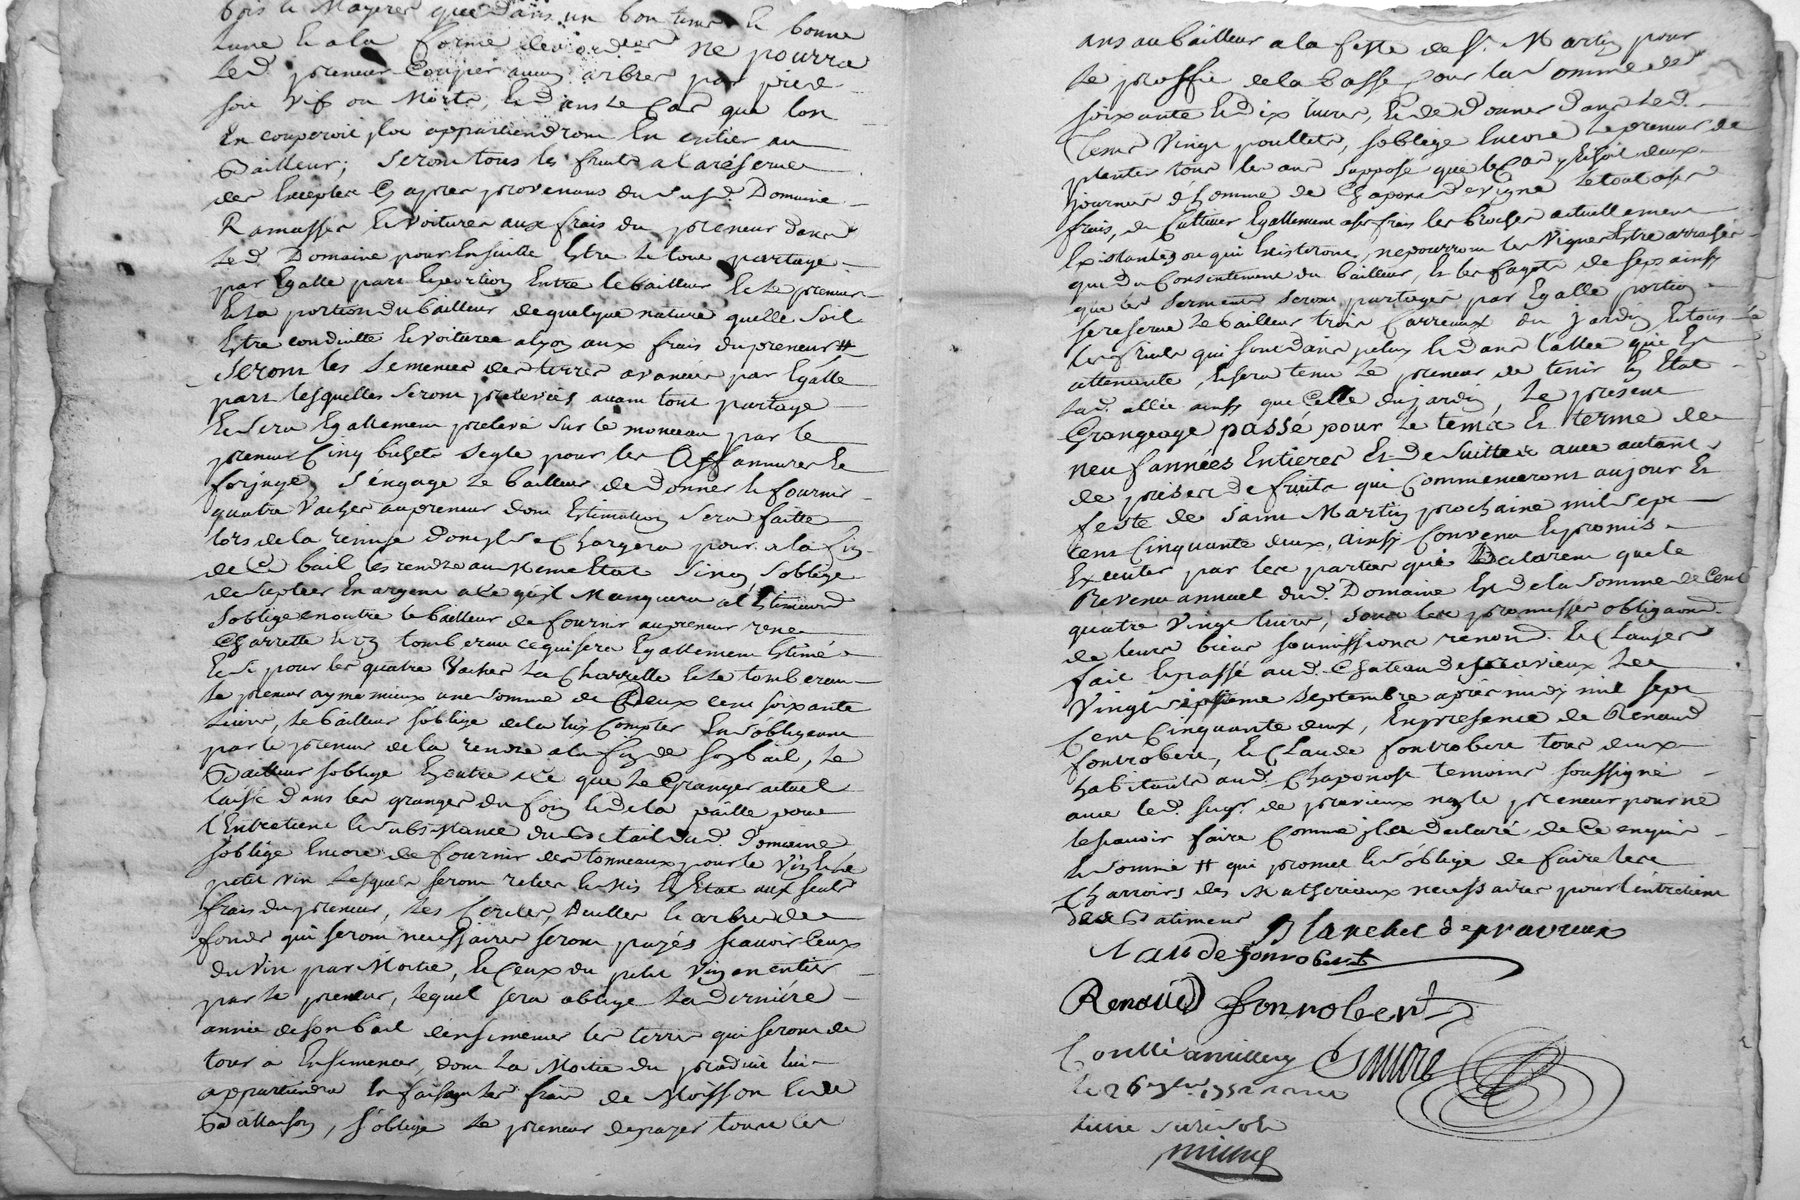 bois le Mayeres que dans un bon tems et bonne
lune et a la forme des ordces ne pourra
led. preneur Couper aucun arbres par pied
soit vifs ou Morts, et dans le Cas que lon
En couperoit ils appartiendront En entier au
Bailleur; Seront tous les fruits a la réserve
des Exceptes Cy apres provenans du susd. Domaine
Ramasses et voitures aux frais du preneur dans
led. Domaine pour Ensuitte Estre le tout partage
par Egalle part Et portion Entre le bailleur Et le preneur
Et la portion du bailleur de quelque nature quelle soit
Estre conduitte et voiturée a lyon aux frais du preneur #
Seront les Semences des terres avancées par Egalle
part lesquelles seront prelevées avant tout partage
Et sera Egallement prelevé sur le monceau par le
preneur Cinq bichets segle pour les Affanures Et
forjuge, s'engage le bailleur de donner et fournir
quatre Vaches au preneur dont Estimation sera faitte
lors de la remise dont il se Chargera pour a la fin
de Ce bail les rendre au meme Etat sinon soblige
de supleer En argent a Ce qu'il Manquera
soblige en outre le bailleur de fournir au preneur une
Charrette et un tomberau ce qui sera Egallement Estimé
Et si pour les quatre Vaches la Charrette et le tomberau
le preneur ayme mieux une somme de Deux cent soixante
Livres, le bailleur soblige de la luy Compter En s'obligeant
par le preneur de la rendre a la fin de son bail, le
Bailleur soblige En outre a Ce que le Granger actuel
laisse dans les granges du foin et de la paille pour
l'Entretient et subsistance du Bestail dud. Domaine
soblige Encore de fournir des tonneaux pour le Vin et le
petit vin lesquels seront relies et mis En Etat aux seuls
frais du preneur, les Cercles, Douelles et arbres de
fonds qui seront necessaires seront payés scavoir Ceux
du Vin par Moitié, et Ceux du petit Vin en entier
par le preneur, lequel sera obligé la derniére
année de son bail densemencer les terres qui seront de
tour a Ensemencer, dont la Moitie du produit lui
appartiendra En faisant les frais de Moisson et de
Battaison, s'oblige le preneur de payer tous les
ans au bailleur a la feste de St. Martin pour
le proffit de la Basse Cour la somme de
soixante et dix livres, et de donner dans led.
Tems Vingt poullets, soblige Encore le preneur de
planter tous les ans supposé que le Cas y Echoit deux
journées d'homme de Chapons de vigne le tout a ses
frais, de Cultiver Egallement a ses frais les Broches actuellement
Existantes ou qui Existeront, ne pourront les Vignes Estre arrachées
que du Consentement du bailleur, Et les fagots de seps ainsy
que les serments seront partagés par Egalle portion
se reserve le bailleur trois Carreaux du Jardin Et tous les
fruits qui sont dans jceluy et dans l'allée qui Est
attenante, Et sera tenu le preneur de tenir En Etat
lad. allée ainsy que Celle du jardin, Le present
Grangeage passé pour le tems Et terme de
neuf années Entieres Et de suitte avec autant
de prises de fruits qui Commenceront au jour Et
feste de Saint Martin prochaine mil sept
cent Cinquante deux, ainsy Convenu Et promis
Executer par les parties qui Declarent que le
Revenu annuel dud. Domaine Est de la somme de Cent
quatre Vingt livres, sous les promesses obligaond.
de leurs biens soumissions renond. Et Clauses
fait Et passé aud. Chateau de pravieux Le
Vingt sixième septembre après midy mil sept
Cent Cinquante deux, En presence de Renaud
fontrobert, et Claude fontrobert tous deux
habitants aud. Chaponost temoins soussigné
avec led. seigr. de pravieux non le preneur pour ne
le scavoir faire Comme jl a declaré de Ce enquis
et sommé # qui promet et s'oblige de faire les
Charroirs des Matheriaux necessaires pour l'entretient
des Batiments Blanchet de pravieux
Claude fonrobert
Renaud fonrobert
Conllé a millery
le 26 7bre 1752